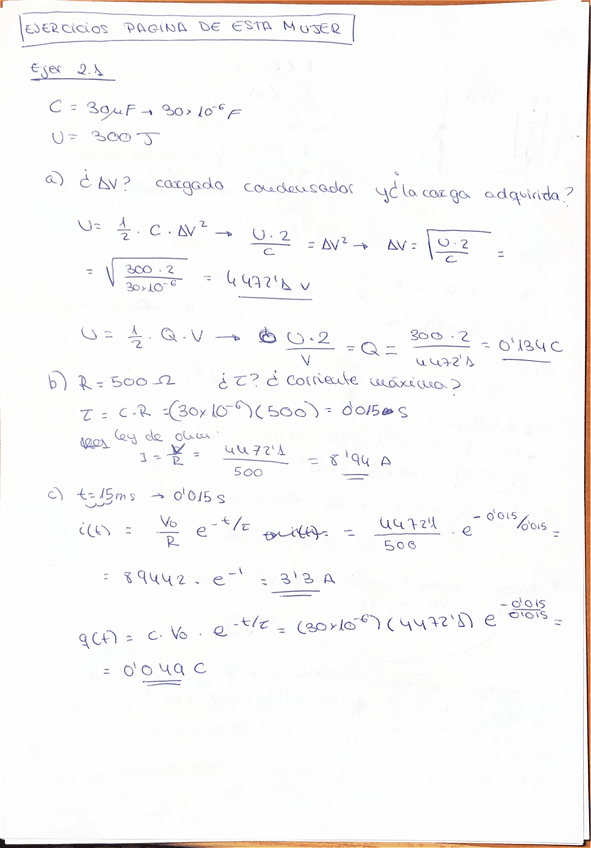 EJERCICIOS PAGINA DE ESTA MUJER
Ejer 2.1
C = 30μF → 30×10⁻⁶ F
U = 300 J
a) ¿ΔV? cargado condensador y ¿la carga adquirida?
U = 1/2 · C · ΔV² → U·2/C = ΔV² → ΔV = √(U·2/C) =
= √(300·2/30×10⁻⁶) = 4472'1 V
U = 1/2 · Q · V → U·2/V = Q = 300·2/4472'1 = 0'134 C
b) R = 500 Ω ¿τ? ¿corriente máxima?
τ = C·R = (30×10⁻⁶)(500) = 0'015 s
ley de ohm:
I = V/R = 4472'1/500 = 8'94 A
c) t = 15ms → 0'015 s
i(t) = V₀/R e^(-t/τ) = 4472'1/500 · e^(-0'015/0'015) =
= 89442 · e⁻¹ = 3'3 A
q(t) = C · V₀ · e^(-t/τ) = (30×10⁻⁶)(4472'1) e^(-0'015/0'015) =
= 0'049 C